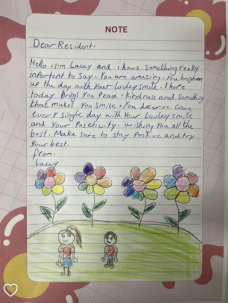 NOTE
Dear Resident.
Hello, I'm Lacey and i have something really
importent to Say. You are amazing. You brighten
up the day with Your Lovley Smile. I hope
today brings You Peace, Kindness and Something
that makes You Smile. You deserve care
every single day with Your Lovley Smile
and Your Positivity. Wishing You all the
best. Make sure to stay Positive and try
Your best.
From.
Lacey